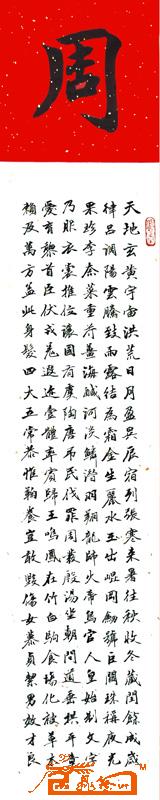 周
天地玄黃宇宙洪荒日月盈昃辰宿列張寒來暑往秋收冬藏閏餘成歲
律呂調陽雲騰致雨露結為霜金生麗水玉出崐岡劍號巨闕珠稱夜光
果珍李柰菜重芥薑海鹹河淡鱗潛羽翔龍師火帝鳥官人皇始制文字
乃服衣裳推位讓國有虞陶唐弔民伐罪周發殷湯坐朝問道垂拱平章
愛育黎首臣伏戎羌遐邇壹體率賓歸王鳴鳳在竹白駒食場化被草木
賴及萬方蓋此身髮四大五常恭惟鞠養豈敢毀傷女慕貞絜男效才良